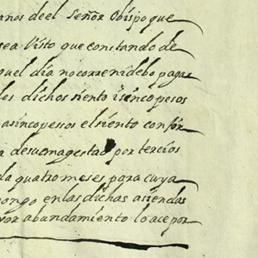 anos deel Señor Obispo que
sea Visto que constando de
quel dia nocorrenidebo pagar
los dichos siento i sinco pesos
asincopesos elsiento confor
a desumagestad por tercios
da quatro meses para cuya
pongo enlas dichas asiendas
yor abundamiento lo ace por